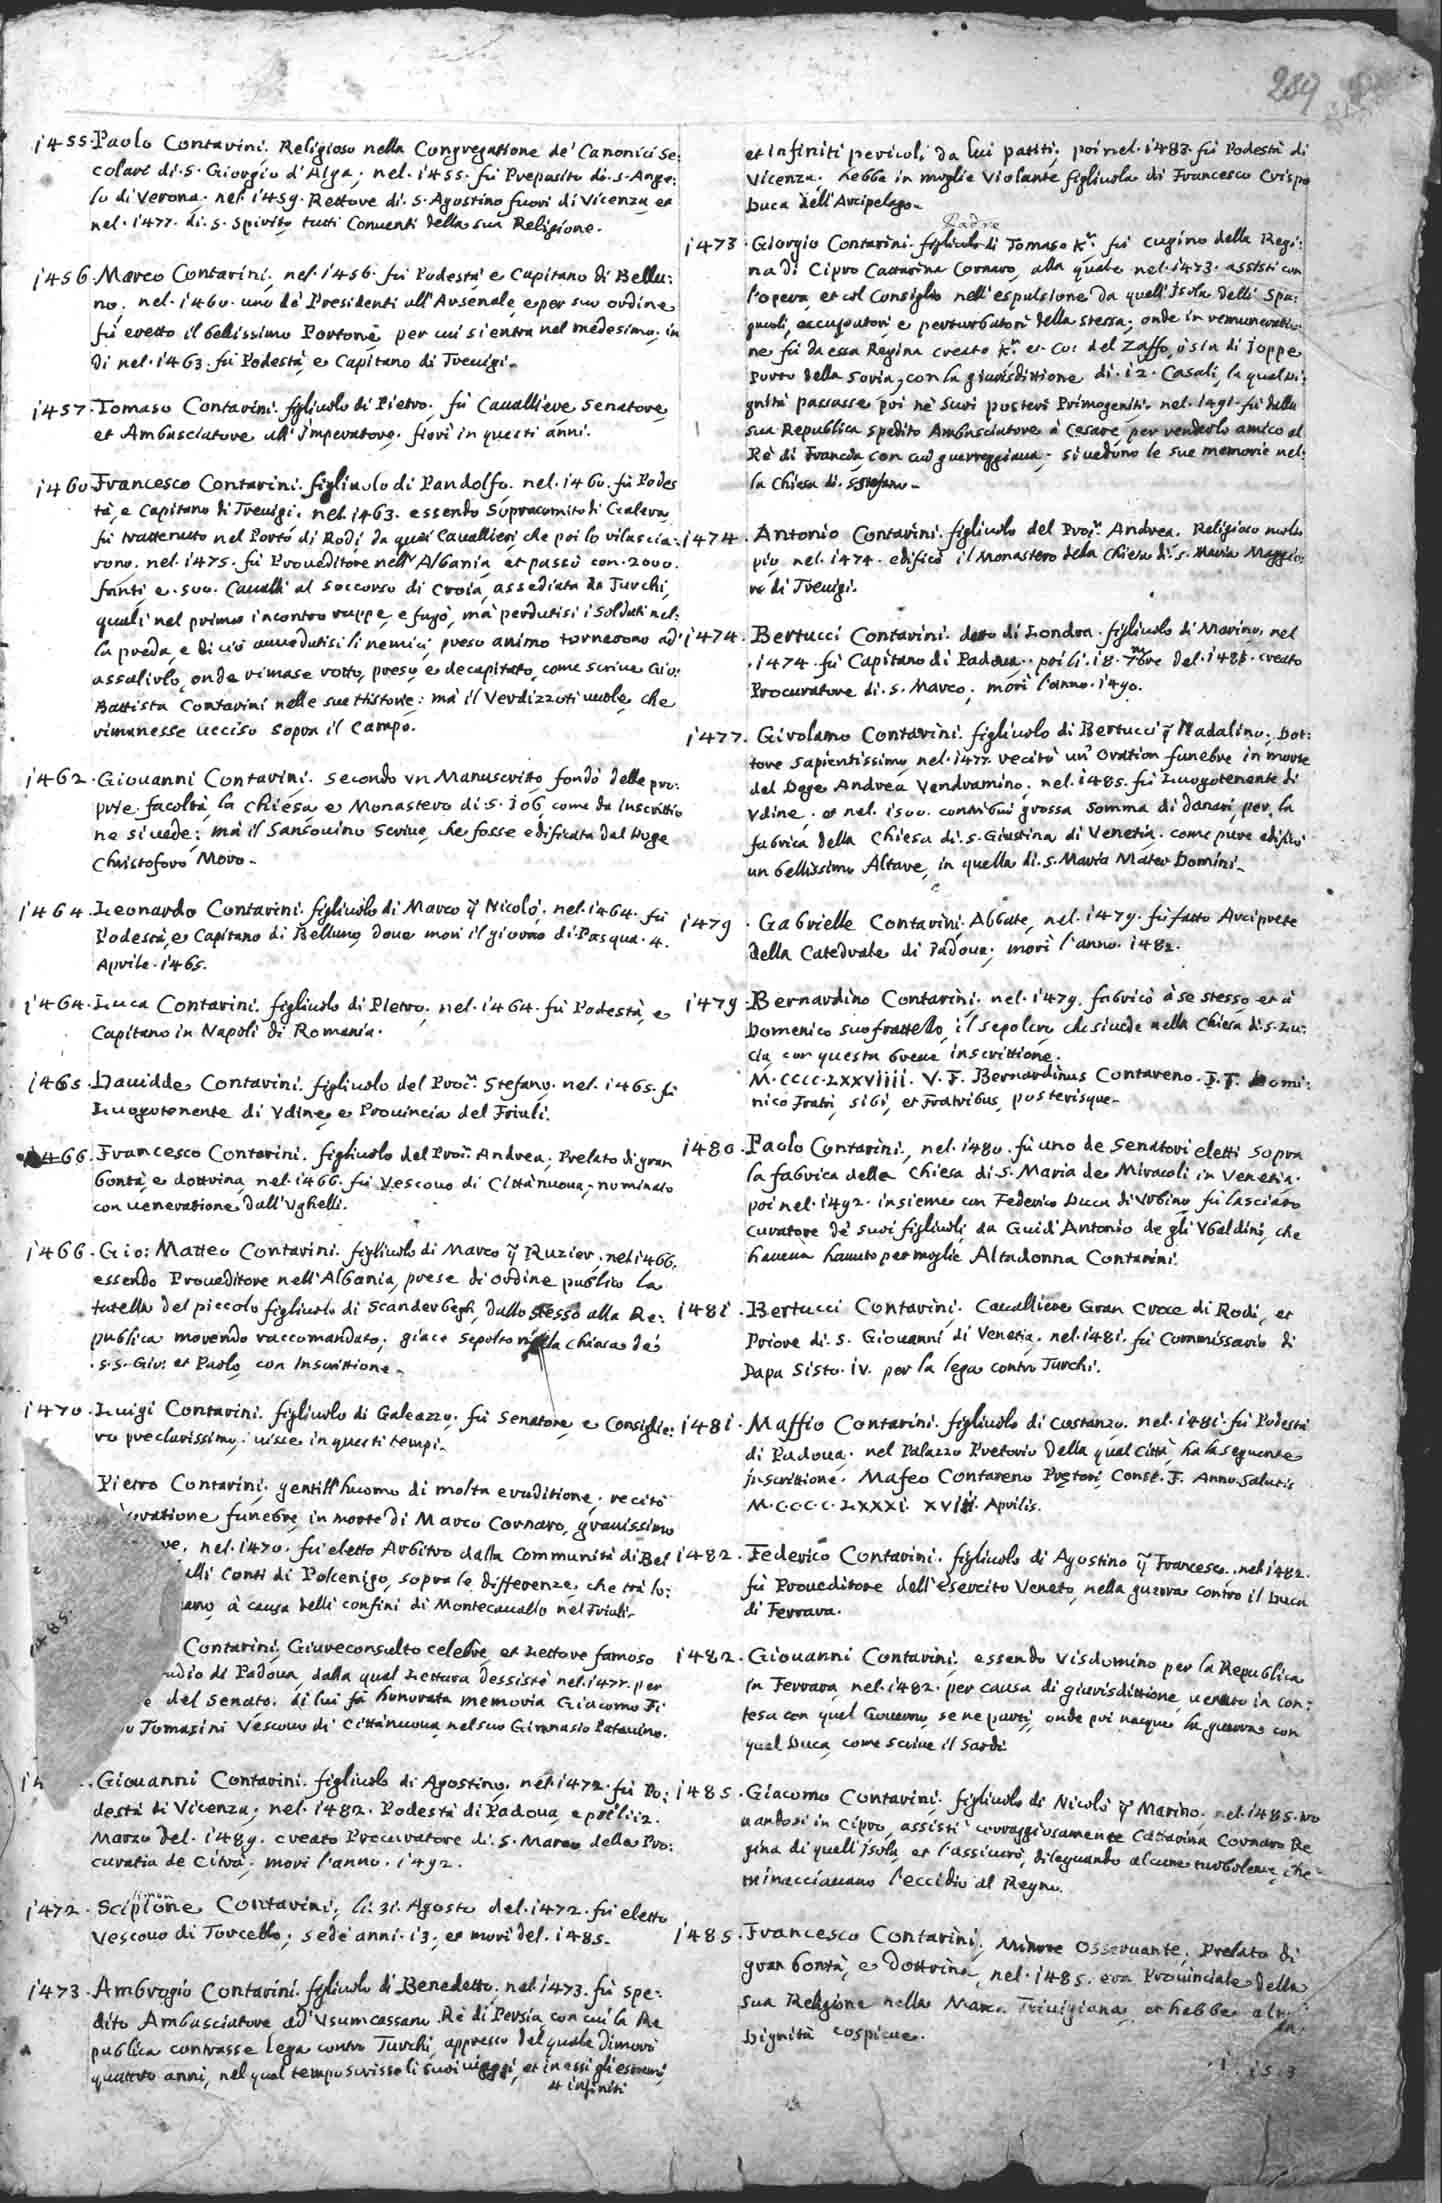 289
1455. Paolo Contarini. Religioso nella Congregatione de' Canonici Se:
colari di. S. Giorgio d'Alga; nel. 1455. fù Preposito di. S. Ange:
lo di Verona. nel. 1459. Rettore di. S. Agostino fuori di Vicenza, et
nel. 1477. di. S. Spirito tutti Conventi della sua Religione.
1456. Marco Contarini, nel. 1456. fù Podestà e Capitano di Bellu:
no, nel. 1460. uno de' Presidenti all'Arsenale, e per suo ordine
fù eretto il bellissimo Portone, per cui si entra nel medesimo, in
di nel. 1463. fù Podestà, e Capitano di Treuigi.
1457. Tomaso Contarini. figliuolo di Pietro. fù Cavalliere, Senatore,
et Ambasciatore all'Imperatore. fiorì in questi anni.
1460. Francesco Contarini. figliuolo di Pandolfo. nel. 1460. fù Podes
tà, e Capitano di Treuigi. nel. 1463. essendo Sopracomito di Galera,
fù trattenuto nel Porto di Rodi, da quei Cavallieri, che poi lo rilascia:
rono. nel. 1475. fù Proueditore nell'Albania, et passò con. 2000.
fanti, e. 500. Caualli al soccorso di Croia, assediata da Turchi,
quali nel primo incontro ruppe, e fugò, mà perdutisi i Soldati nel:
la preda, e di ciò auuedutisi li nemici, preso animo tornerono ad
assalirlo, onde rimase rotto, preso, e decapitato, come scriue Gio:
Battista Contarini nelle sue Historie: mà il Verdizzoti uuole, che
rimanesse ucciso sopra il Campo.
1462. Giouanni Contarini, secondo vn Manuscritto, fondò delle pro:
prie facoltà, la Chiesa, e Monastero di. S. Job, come da Inscrittio
ne si vede; mà il Sansouino scriue, che fosse edificata dal Doge
Christoforo Moro.
1464. Leonardo Contarini. figliuolo di Marco q. Nicolò. nel. 1464. fù
Podestà, e Capitano di Belluno, doue morì il giorno di Pasqua. 4.
Aprile. 1465.
1464. Luca Contarini. figliuolo di Pietro, nel. 1464. fù Podestà, e
Capitano in Napoli di Romania.
1465. Dauidde Contarini. figliuolo del Proc.r Stefano. nel. 1465. fù
Luogotenente di Vdine, e Prouincia del Friuli.
1466. Francesco Contarini. figliuolo del Proc.r Andrea, Prelato di gran
bontà, e dottrina, nel. 1466. fù Vescouo di Cittanuoua, nominato
con ueneratione dall'Vghelli.
1466. Gio: Matteo Contarini. figliuolo di Marco q. Ruzier. nel 1466.
essendo Proueditore nell'Albania, prese di ordine publico la
tutella del piccolo figliuolo di Scanderbegh, dallo stesso alla Re:
publica morendo raccomandato; giace sepolto nella Chiesa de'
. S.S. Gio: et Paolo, con Inscrittione.
1470. Luigi Contarini. figliuolo di Galeazzo, fù Senatore, e Consiglie:
ro preclarissimo; uisse in questi tempi.
Pietro Contarini. gentill'huomo di molta eruditione; recitò
oratione funebre, in morte di Marco Cornaro, grauissimo
nel. 1470. fù eletto Arbitro dalla Communità di Bel
Conti di Polcenigo, sopra le differenze, che trà lo:
à causa delli confini di Montecauallo nel Friuli.
Contarini, Giureconsulto celebre, et Lettore famoso
di Padoua, dalla qual Lettura dessistè nel. 1477. per
del Senato. di lui fà honorata memoria Giacomo Fi
Tomasini Vescouo di Cittanuoua, nel suo Gimnasio Patauino.
Giouanni Contarini. figliuolo di Agostino, nel. 1472. fù Po:
destà di Vicenza; nel. 1482. Podestà di Padoua, e poi li 12.
Marzo del. 1489. creato Procuratore di. S. Marco della Pro:
curatia de Citrà; morì l'anno. 1492.
1472. Scipione Contarini, li. 31. Agosto del. 1472. fù eletto
Vescouo di Torcello; sedè anni. 13, et morì del. 1485.
1473. Ambrogio Contarini. figliuolo di Benedetto. nel. 1473. fù spe:
dito Ambasciatore ad Vsumcassano Rè di Persia, con cui la Re
publica contrasse Lega contro Turchi, appresso del quale dimorò
quattro anni, nel qual tempo scrisse li suoi uiaggi, et in essi gli estremi,
et infiniti
et infiniti pericoli da lui patiti; poi nel. 1483. fù Podestà di
Vicenza. hebbe in moglie Violante figliuola di Francesco Crispo
Duca dell'Arcipelago.
Padre
1473. Giorgio Contarini. figliuolo di Tomaso K.r fù cugino della Regi:
na di Cipro Cattarina Cornaro, alla quale nel. 1473. assistì con
l'opera, et col Consiglio nell'espulsione da quell'Isola delli Spa:
gnuoli, occupatori e perturbatori della stessa; onde in remuneratio
ne fù da essa Regina creato K.r et Co: del Zaffo, ò sia di Joppe
Porto della Soria, con la giurisdittione di. 12. Casali, la qual Di
gnità passasse poi ne' suoi posteri Primogeniti. nel. 1491. fù dalla
sua Republica spedito Ambasciatore à Cesare, per renderlo amico al
Rè di Francia, con cui guerreggiaua; si uedono le sue memorie nel:
la Chiesa di. S. Stefano.
1474. Antonio Contarini. figliuolo del Proc.r Andrea. Religioso molto
pio, nel. 1474. edificò il Monastero della Chiesa di. S. Maria Maggio:
re di Treuigi.
1474. Bertucci Contarini. detto di Londra. figliuolo di Marino, nel
. 1474. fù Capitano di Padoua. poi li. 18. 7mbre del. 1485. creato
Procuratore di. S. Marco; morì l'anno. 1490.
1477. Girolamo Contarini. figliuolo di Bertucci q. Nadalino; Dot:
tore sapientissimo, nel. 1477. recitò un'Oration funebre in morte
del Doge Andrea Vendramino. nel. 1485. fù Luogotenente di
Vdine, et nel. 1500. contribuì grossa somma di danari, per la
fabrica della Chiesa di. S. Giustina di Venetia. come pure edificò
un bellissimo Altare, in quella di. S. Maria Mater Domini.
1479. Gabrielle Contarini. Abbate, nel. 1479. fù fatto Arciprete
della Catedrale di Padoua; morì l'anno. 1482.
1479. Bernardino Contarini. nel. 1479. fabricò à se stesso, et à
Domenico suo frattello, il sepolcro, che si uede nella Chiesa di. S. Lu:
cia, con questa breue inscrittione.
M. CCCC. LXXVIIII. V. F. Bernardinus Contareno. F. F. Domi:
nico Fratri, sibi, et Fratribus, posterisque.
1480. Paolo Contarini, nel. 1480. fù uno de Senatori eletti sopra
la fabrica della Chiesa di. S. Maria de Miracoli in Venetia.
poi nel. 1492. insieme con Federico Duca di Vrbino, fù lasciato
curatore de' suoi figliuoli, da Guid'Antonio de gli Vbaldini, che
haueua hauuto per moglie Altadonna Contarini.
1481. Bertucci Contarini. Caualliere Gran Croce di Rodi, et
Priore di. S. Giouanni di Venetia, nel. 1481. fù Commissario di
Papa Sisto. IV. per la lega contro Turchi.
1481. Maffio Contarini. figliuolo di Costanzo. nel. 1481. fù Podestà
di Padoua. nel Palazzo Pretorio della qual Città, hà la seguente
inscrittione. Mafeo Contareno Prętori, Const. F. Anno Salutis
M.C.C.C.C.LXXXI. XVIII. Aprilis.
1482. Federico Contarini. figliuolo di Agostino q. Francesco. nel 1482.
fù Proueditore dell'esercito Veneto, nella guerra contro il Duca
di Ferrara.
1482. Giouanni Contarini, essendo Visdomino per la Republica
in Ferrara, nel. 1482. per causa di giurisdittione uenuto in con:
tesa con quel Gouerno, se ne partì, onde poi nacque la guerra con
quel Duca, come scriue il Sardi.
1485. Giacomo Contarini. figliuolo di Nicolò q. Marino, nel. 1485. tro
uandosi in Cipro, assistì coraggiosamente Cattarina Cornaro Re
gina di quell'Isola, et l'assicurò, dileguando alcune turbolenze, che
minacciauano l'eccidio al Regno.
1485. Francesco Contarini, Minore Osseruante, Prelato di
gran bontà, e dottrina, nel. 1485. era Prouinciale della
sua Religione nella Marca Triuigiana, et hebbe altre
Dignità cospicue.
1485.